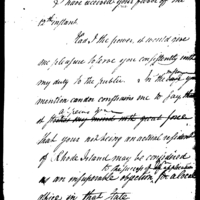 I have received your favor of the
12th instant.
Had I the power, it would give
me pleasure to serve you consistently with
my duty to the public. In the
mention candor constrains me to say that
I
that your not being an actual resident
of Rhode Island may be considered
as an insuperable objection for a local
office in that State